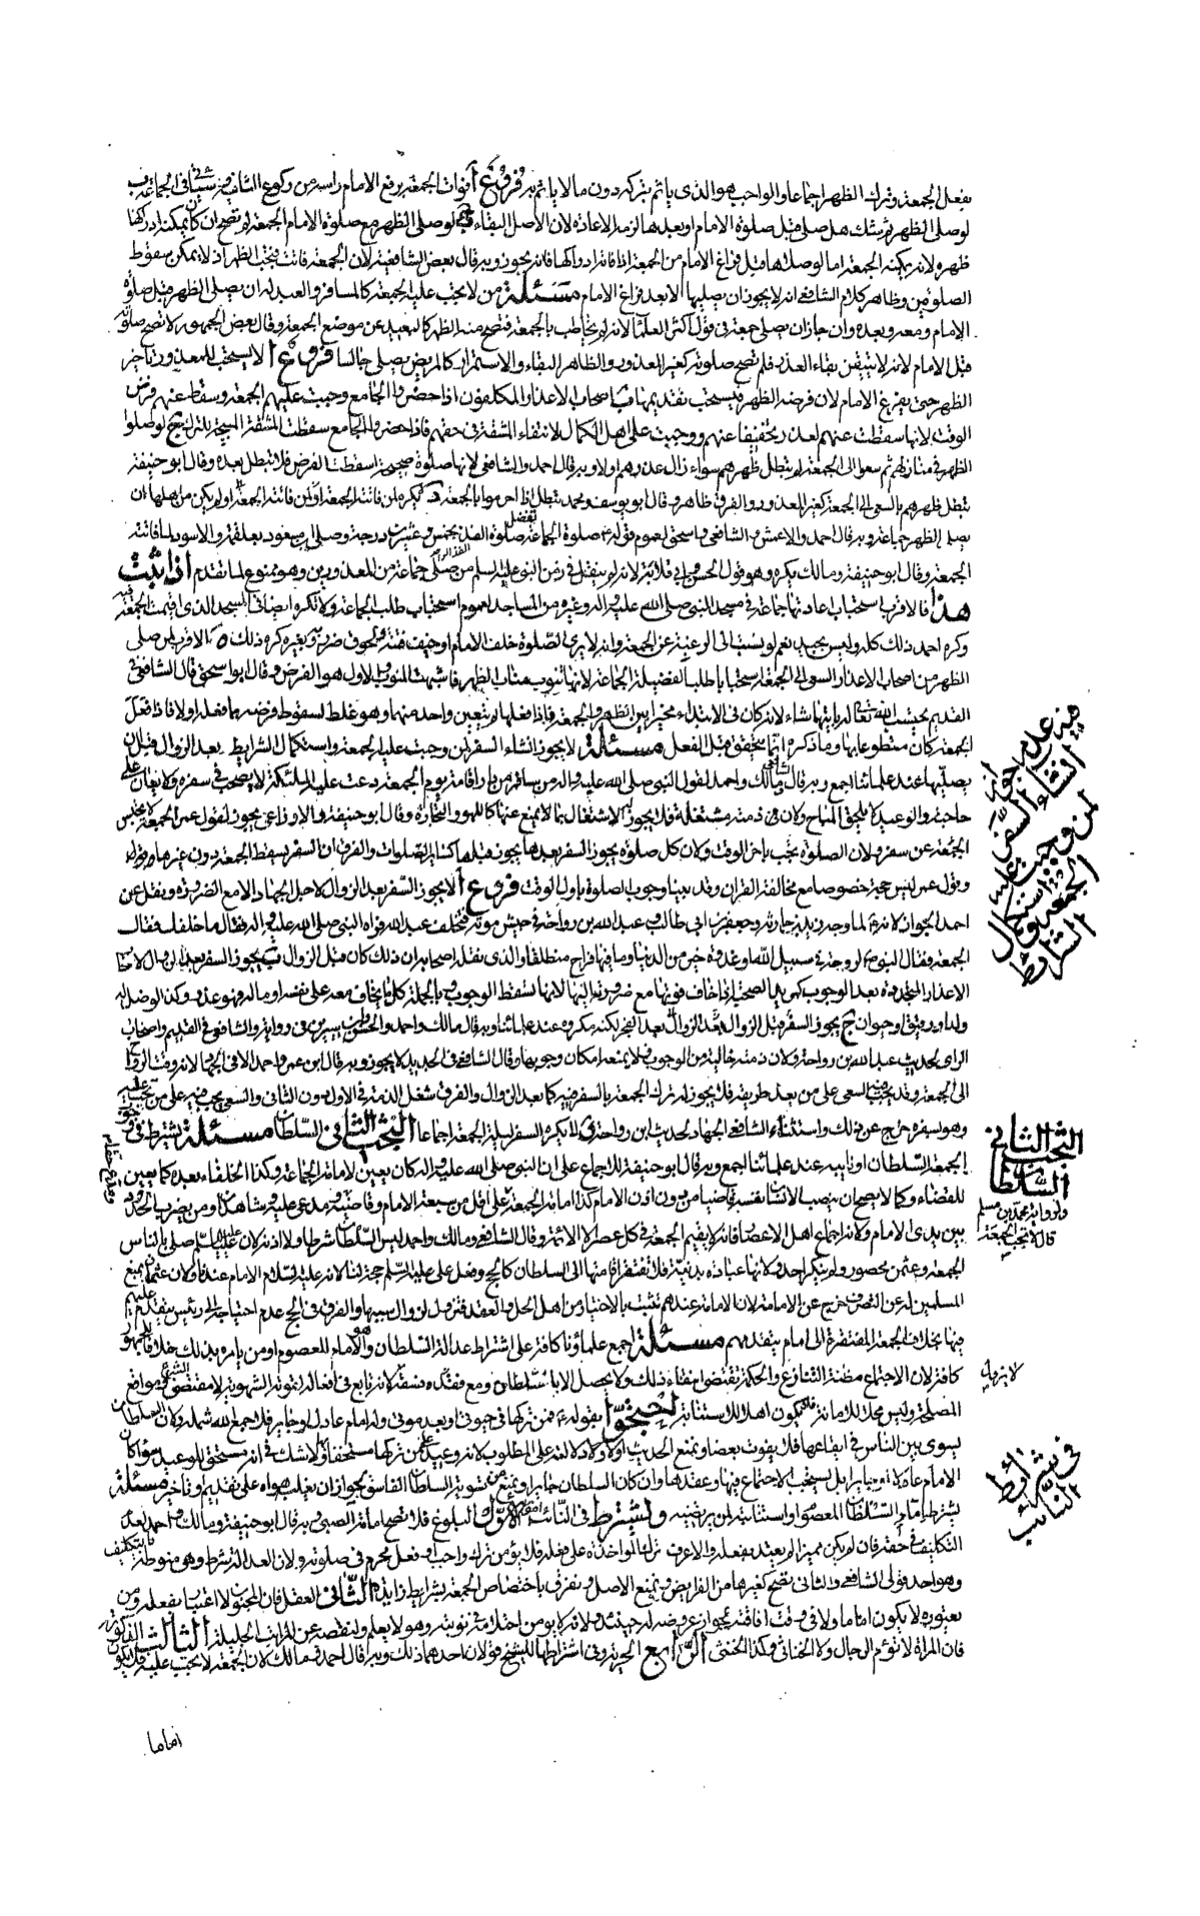 بفعل الجمعة وترك الظهر اجماعا والواجب هو الذى ياثم بتركه دون ما لا ياثم به فروع آ فوات الجمعة برفع الامام راسه من ركوع الثانية
لو صلى الظهر ثم شك هل صلى قبل صلوة الامام او بعدها لزمه الاعادة لان الاصل البقاء ج لو صلى الظهر مع صلوة الامام الجمعة لم تصح ان كان يمكنه ادراكها
ظهره لانه يمكنه الجمعة اما لو صلاها قبل فراغ الامام من الجمعة اذا فاته ادراكها فانه يجوز وبه قال بعض الشافعية لان الجمعة فاتت فتجب الظهر اذ لا يمكن سقوط
الصلوتين وظاهر كلام الشافعى انه لا يجوز ان يصليها الا بعد فراغ الامام مسئلة من لا تجب عليه الجمعة كالمسافر والعبد له ان يصلى الظهر قبل صلوة
الامام ومعه وبعده وان جاز ان يصلى جمعة فى قول اكثر العلماء لانه لم يخاطب بالجمعة فتصح منه الظهر كالبعيد عن موضع الجمعة وقال بعض الجمهور لا تصح صلوته
قبل الامام لانه لا يتيقن بقاء العذر فلم تصح صلوته كغير المعذور والظاهر البقاء والاستمرار كالمريض يصلى جالسا فروع آ لا يستحب للمعذور تاخير
الظهر حتى يفرغ الامام لان فرضه الظهر فيستحب تقديمها ب اصحاب الاعذار المكلفون اذا حضروا الجامع وجبت عليهم الجمعة وسقط عنهم فرض
الوقت لانها سقطت عنهم لعذر تخفيفا عنهم ووجبت على اهل الكمال لانتفاء المشقة فى حقهم فاذا حضروا الجامع سقطت المشقة المبيحة للترك ج لو صلوا
الظهر فى منازلهم ثم سعوا الى الجمعة لم تبطل ظهرهم سواء زال عذرهم اولا وبه قال احمد والشافعى لانها صلوة صحيحة اسقطت الفرض فلا تبطل بعده وقال ابو حنيفة
تبطل ظهرهم بالسعى الى الجمعة كغير المعذور والفرق ظاهر وقال ابو يوسف ومحمد تبطل اذا احرموا بالجمعة د لا يكره لمن فاتته الجمعة او لم يكن من اهلها ان
يصلى الظهر جماعة وبه قال احمد والاعمش والشافعى واسحق لعموم قوله صلوة الجماعة تفضل صلوة الفذ بخمس وعشرين درجة وصلى ابن مسعود بعلقمة والاسود لما فاتته
الجمعة وقال ابو حنيفة ومالك يكره وهو قول الحسن وابى قلابة لانه لم ينقل فى زمن النبى عليه السلام من صلى جماعة من المعذورين وهو ممنوع لما تقدم اذا ثبت
هذا فالاقرب استحباب اعادتها جماعة فى مسجد النبى صلى الله عليه واله وغيره من المساجد لعموم استحباب طلب الجماعة ولا تكره ايضا فى المسجد الذى اقيمت الجمعة فيه
وكره احمد ذلك كله وليس بجيد نعم لو نسب الى الرغبة عن الجمعة وانه لا يرى الصلوة خلف الامام او خيف فتنة ولحوق ضرر به وبغيره كره ذلك ه الاقرب لمن صلى
الظهر من اصحاب الاعذار السعى الى الجمعة استحبابا طلبا لفضيلة الجماعة لانها تنوب مناب الظهر فاشبهت المندوب والاول هو الفرض وقال ابو اسحق قال الشافعى فى
القديم يحتسب الله تعالى له بايتهما شاء لانه كان فى الابتداء مخيرا بين الظهر والجمعة فاذا فعلهما لم يتعين واحد منهما وهو غلط لسقوط فرضه بما فعله اولا فاذا فعل
الجمعة كان متطوعا بها وما ذكره انما يتحقق قبل الفعل مسئلة لا يجوز انشاء السفر لمن وجبت عليه الجمعة واستكمل الشرايط بعد الزوال قبل ان
يصليها عند علمائنا اجمع وبه قال الشافعى ومالك واحمد لقول النبى صلى الله عليه واله من سافر من دار اقامته يوم الجمعة دعت عليه الملئكة لا يصحب فى سفره ولا يعان على
حاجته والوعيد لا يلحق المباح ولان ذمته مشتغلة فلا يجوز له الاشتغال بما لا يمنع عنها كاللهو والتجارة وقال ابو حنيفة والاوزاعى يجوز لقول عمر الجمعة لا تحبس
الجمعة عن سفر ولان الصلوة تجب باخر الوقت ولان كل صلوة يجوز السفر بعدها يجوز قبلها كساير الصلوات والفرق ان السفر يسقط الجمعة دون غيرها
وقول عمر ليس حجة خصوصا مع مخالفة القران وقد بينا وجوب الصلوة باول الوقت فروع آ لا يجوز السفر بعد الزوال لاجل الجهاد الا مع الضرورة ونقل عن
احمد الجواز لانه لما وجه زيد بن حارثة وجعفر بن ابى طالب وعبد الله بن رواحة فى جيش موتة فتخلف عبد الله فراه النبى صلى الله عليه واله فقال ما خلفك فقال
الجمعة فقال النبى لروحة فى سبيل الله او غدوة خير من الدنيا وما فيها فراح منطلقا والذى نقله اصحابه ان ذلك كان قبل الزوال ب يجوز السفر بعد الزوال
الاعذار المتجددة بعد الوجوب كهرب الصحبة اذا خاف فوتها مع ضرورته اليها لانها تسقط الوجوب وبالجملة كل ما يخاف معه على نفسه او ماله فهو عذر
ج يجوز السفر قبل الزوال بعد الفجر لكنه مكروه عند علمائنا وبه قال مالك واحمد والحسن وابن سيرين فى رواية والشافعى فى القديم واصحاب
الراى لحديث عبد الله بن رواحة ولان ذمته خالية من الوجوب فلا يمنعه امكان وجوبها وقال الشافعى فى الجديد لا يجوز وبه قال ابن عمر واحمد الا فى الجهاد لانه وقت الرواح
الى الجمعة وقد يجب فيه السعى على من بعد طريقه فلا يجوز له ترك الجمعة بالسفر فيه كما بعد الزوال والفرق شغل الذمة فى الاول دون الثانى والسعى يجب فيه على من تجب عليه
وهو بسفره خرج عن ذلك واستثناء الشافعى الجهاد لحديث ابن رواحة د لا يكره السفر ليلة الجمعة اجماعا البحث الثانى فى السلطان مسئلة يشترط فى
الجمعة السلطان او نايبه عند علمائنا اجمع وبه قال ابو حنيفة للاجماع على ان النبى صلى الله عليه واله كان يعين لامامة الجماعة وكذا الخلفاء بعده كما يعين
للقضاء وكما لا يصح ان ينصب الانسان نفسه قاضيا من دون اذن الامام كذا امامة الجمعة
بين يدى الامام ولانه اجماع اهل الاعصار فانه لا يقيم الجمعة فى كل عصر الا الائمة وقال الشافعى ومالك واحمد ليس السلطان شرطا ولا اذنه لان عليا عليه السلام صلى بالناس
الجمعة وعثمن محصور ولم ينكر احد ولانها عبادة بدنية فلا تفتقر اقامتها الى السلطان كالحج وفعل على عليه السلام حجة لنا لانه عليه السلام الامام عندنا ولان عثمان
المسلمين له عن التصرف خرج عن الامامة لان الامامة عندهم تثبت بالاختيار من اهل الحل والعقد فتزول لزوال سببها والفرق فى الحج عدم احتياجه الى رئيس يتقدم عليهم
فيها بخلاف الجمعة المفتقرة الى امام يتقدمهم مسئلة اجمع علماؤنا كافة على اشتراط عدالة السلطان وهو الامام المعصوم او من يامره بذلك خلافا للجمهور
كافة لان الاجتماع مظنة التنازع والحكمة تقتضى انتفاء ذلك ولا يحصل الا بالسلطان ومع فسقه لانه تابع فى افعاله لقوته الشهوية لا مقتضى الشرع ومواضع
المصلحة وليس محلا للامامة فلا يكون اهلا للاستنابة احتجوا بقوله فمن تركها فى حيوتى او بعد موتى وله امام عادل او جاير فلا جمع الله شمله ولان السلطان
يسوى بين الناس فى ايقاعها فلا يفوت بعضا ونمنع الحديث اولا ودلالته على المطلوب لانه وعيد على من تركها مستخفا ولا شك فى انه مستحق للوعيد سواء كان
الامام عادلا او جايرا بل يستحب الاجتماع فيها وعقدها وان كان السلطان جايرا ونمنع من تسوية السلطان الفاسق لجواز ان يغلب هواه على تقديم وتاخير مسئلة
يشترط امامة السلطان المعصوم او استنابته لمن يرتضيه ولشترط فى النائب امور الاول البلوغ فلا تصح امامة الصبى وبه قال ابو حنيفة ومالك واحمد لعدم
التكليف فى حقه فان لم يكن مميزا لم يعتد بفعله والا عرف انه لا مؤاخذة على فعله فلا يؤمن ترك واجب او فعل محرم فى صلوته ولان العدالة شرط وهى منوطة بالتكليف
وهو احد قولى الشافعى والثانى تصح كغيرها من الفرايض ونمنع الاصل ونفرق باختصاص الجمعة بشرايط زايدة الثانى العقل فان المجنون لا اعتبار بفعله ومن
يعتوره لا يكون اماما ولا فى وقت افاقته لجواز عروضه له حينئذ ولانه لا يؤمن احتلامه فى نوبته وهو لا يعلم ولنقصه عن المراتب الجليلة الثالث الذكورة
فان المراة لا تؤم الرجال ولا الخناثى وكذا الخنثى الرابع الحرية وفى اشتراطها للشيخ قولان احدهما ذلك وبه قال احمد ومالك لان الجمعة لا تجب عليه فلا يكون
اماما
فى عدم جواز
انشاء السفر
لمن وجبت عليه
الجمعة واستكمال
الشرائط
البحث الثانى
السلطان
ولرواية محمد بن مسلم
قال لا تجب الجمعة
فى شرائط
النائب